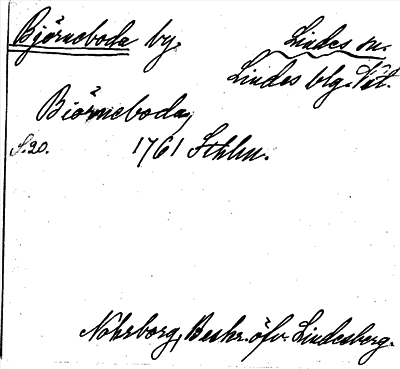 Björneboda by.
Lindes sn.
Lindes blg. Vst.
Biörneboda,
S. 20. 1761 Sthlm.
Nohrborg, Beskr. öfv. Lindesberg.